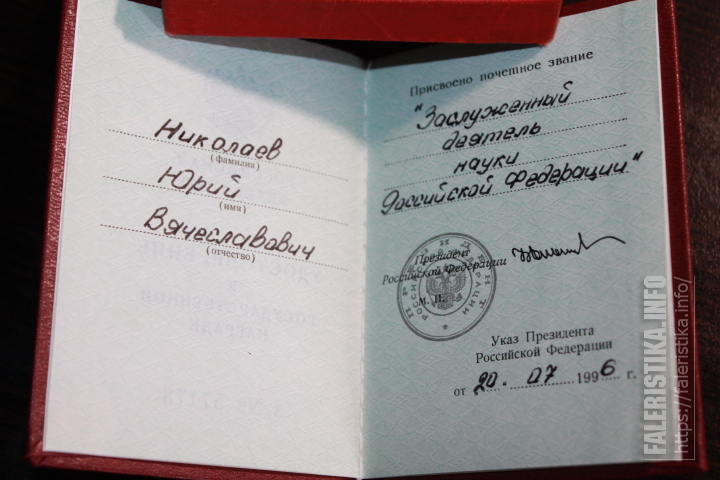 Николаев
(фамилия)
Юрий
(имя)
Вячеславович
(отчество)
Присвоено почетное звание
"Заслуженный
деятель
науки
Российской Федерации"
Президент
Российской Федерации
м. п.
Указ Президента
Российской Федерации
от 20. 07 1996 г.
FALERISTIKA.INFO
https://faleristika.info/